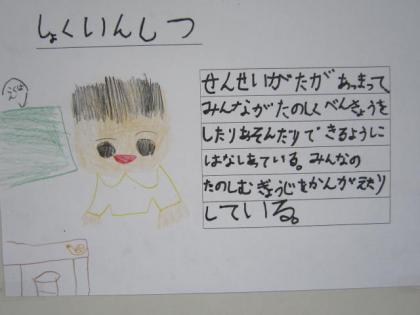 しょくいんしつ
こくばん
せんせいがたが あつまって
みんながたのしくべんきょうを
したりあそんだりできるように
はなしあている。みんなの
たのしむぎょうじをかんがえたり
している。